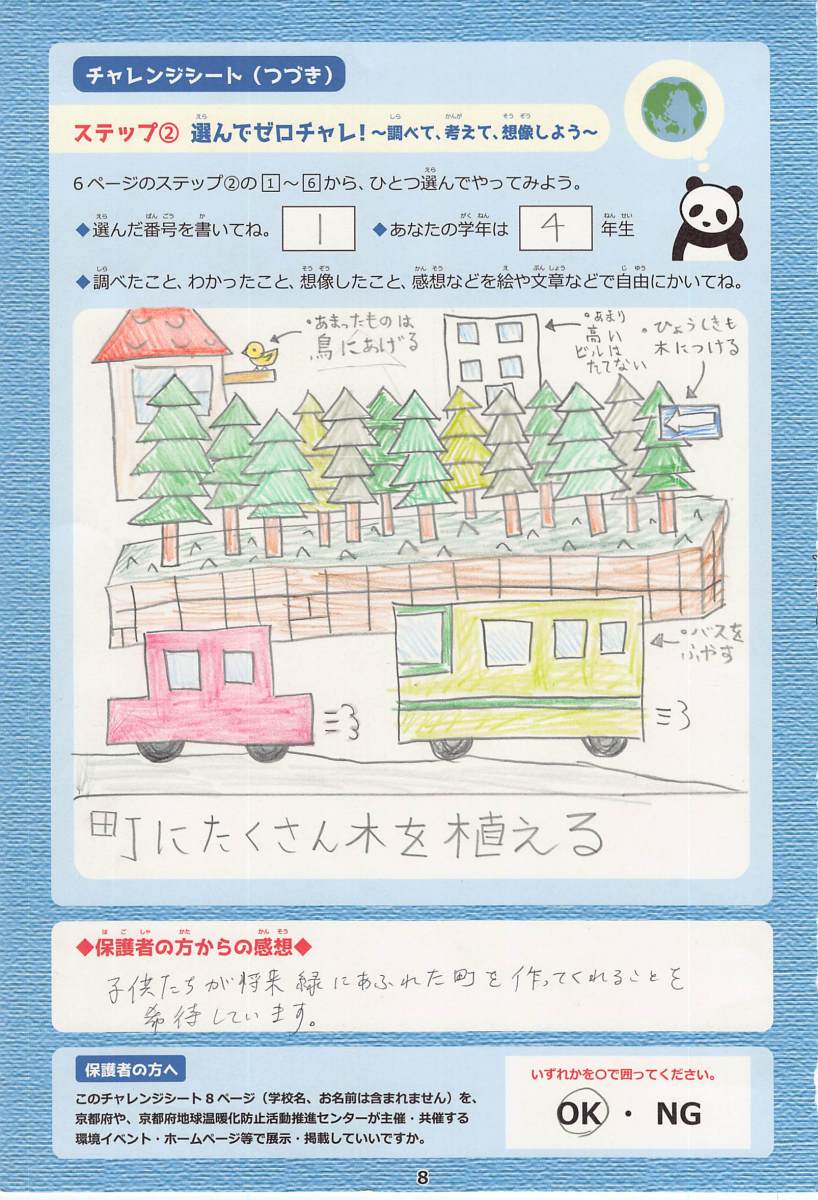 チャレンジシート（つづき）
ステップ② 選んでゼロチャレ！～調べて、考えて、想像しよう～
6ページのステップ②の1～6から、ひとつ選んでやってみよう。
◆選んだ番号を書いてね。 1 ◆あなたの学年は 4 年生
◆調べたこと、わかったこと、想像したこと、感想などを絵や文章などで自由にかいてね。
・あまったものは
鳥にあげる
・あまり
高い
ビルは
たてない
・ひょうしきも
木につける
・バスを
ふやす
町にたくさん木を植える
◆保護者の方からの感想◆
子供たちが将来緑にあふれた町を作ってくれることを
希待しています。
保護者の方へ
このチャレンジシート8ページ（学校名、お名前は含まれません）を、
京都府や、京都府地球温暖化防止活動推進センターが主催・共催する
環境イベント・ホームページ等で展示・掲載していいですか。
いずれかを○で囲ってください。
OK ・ NG
8